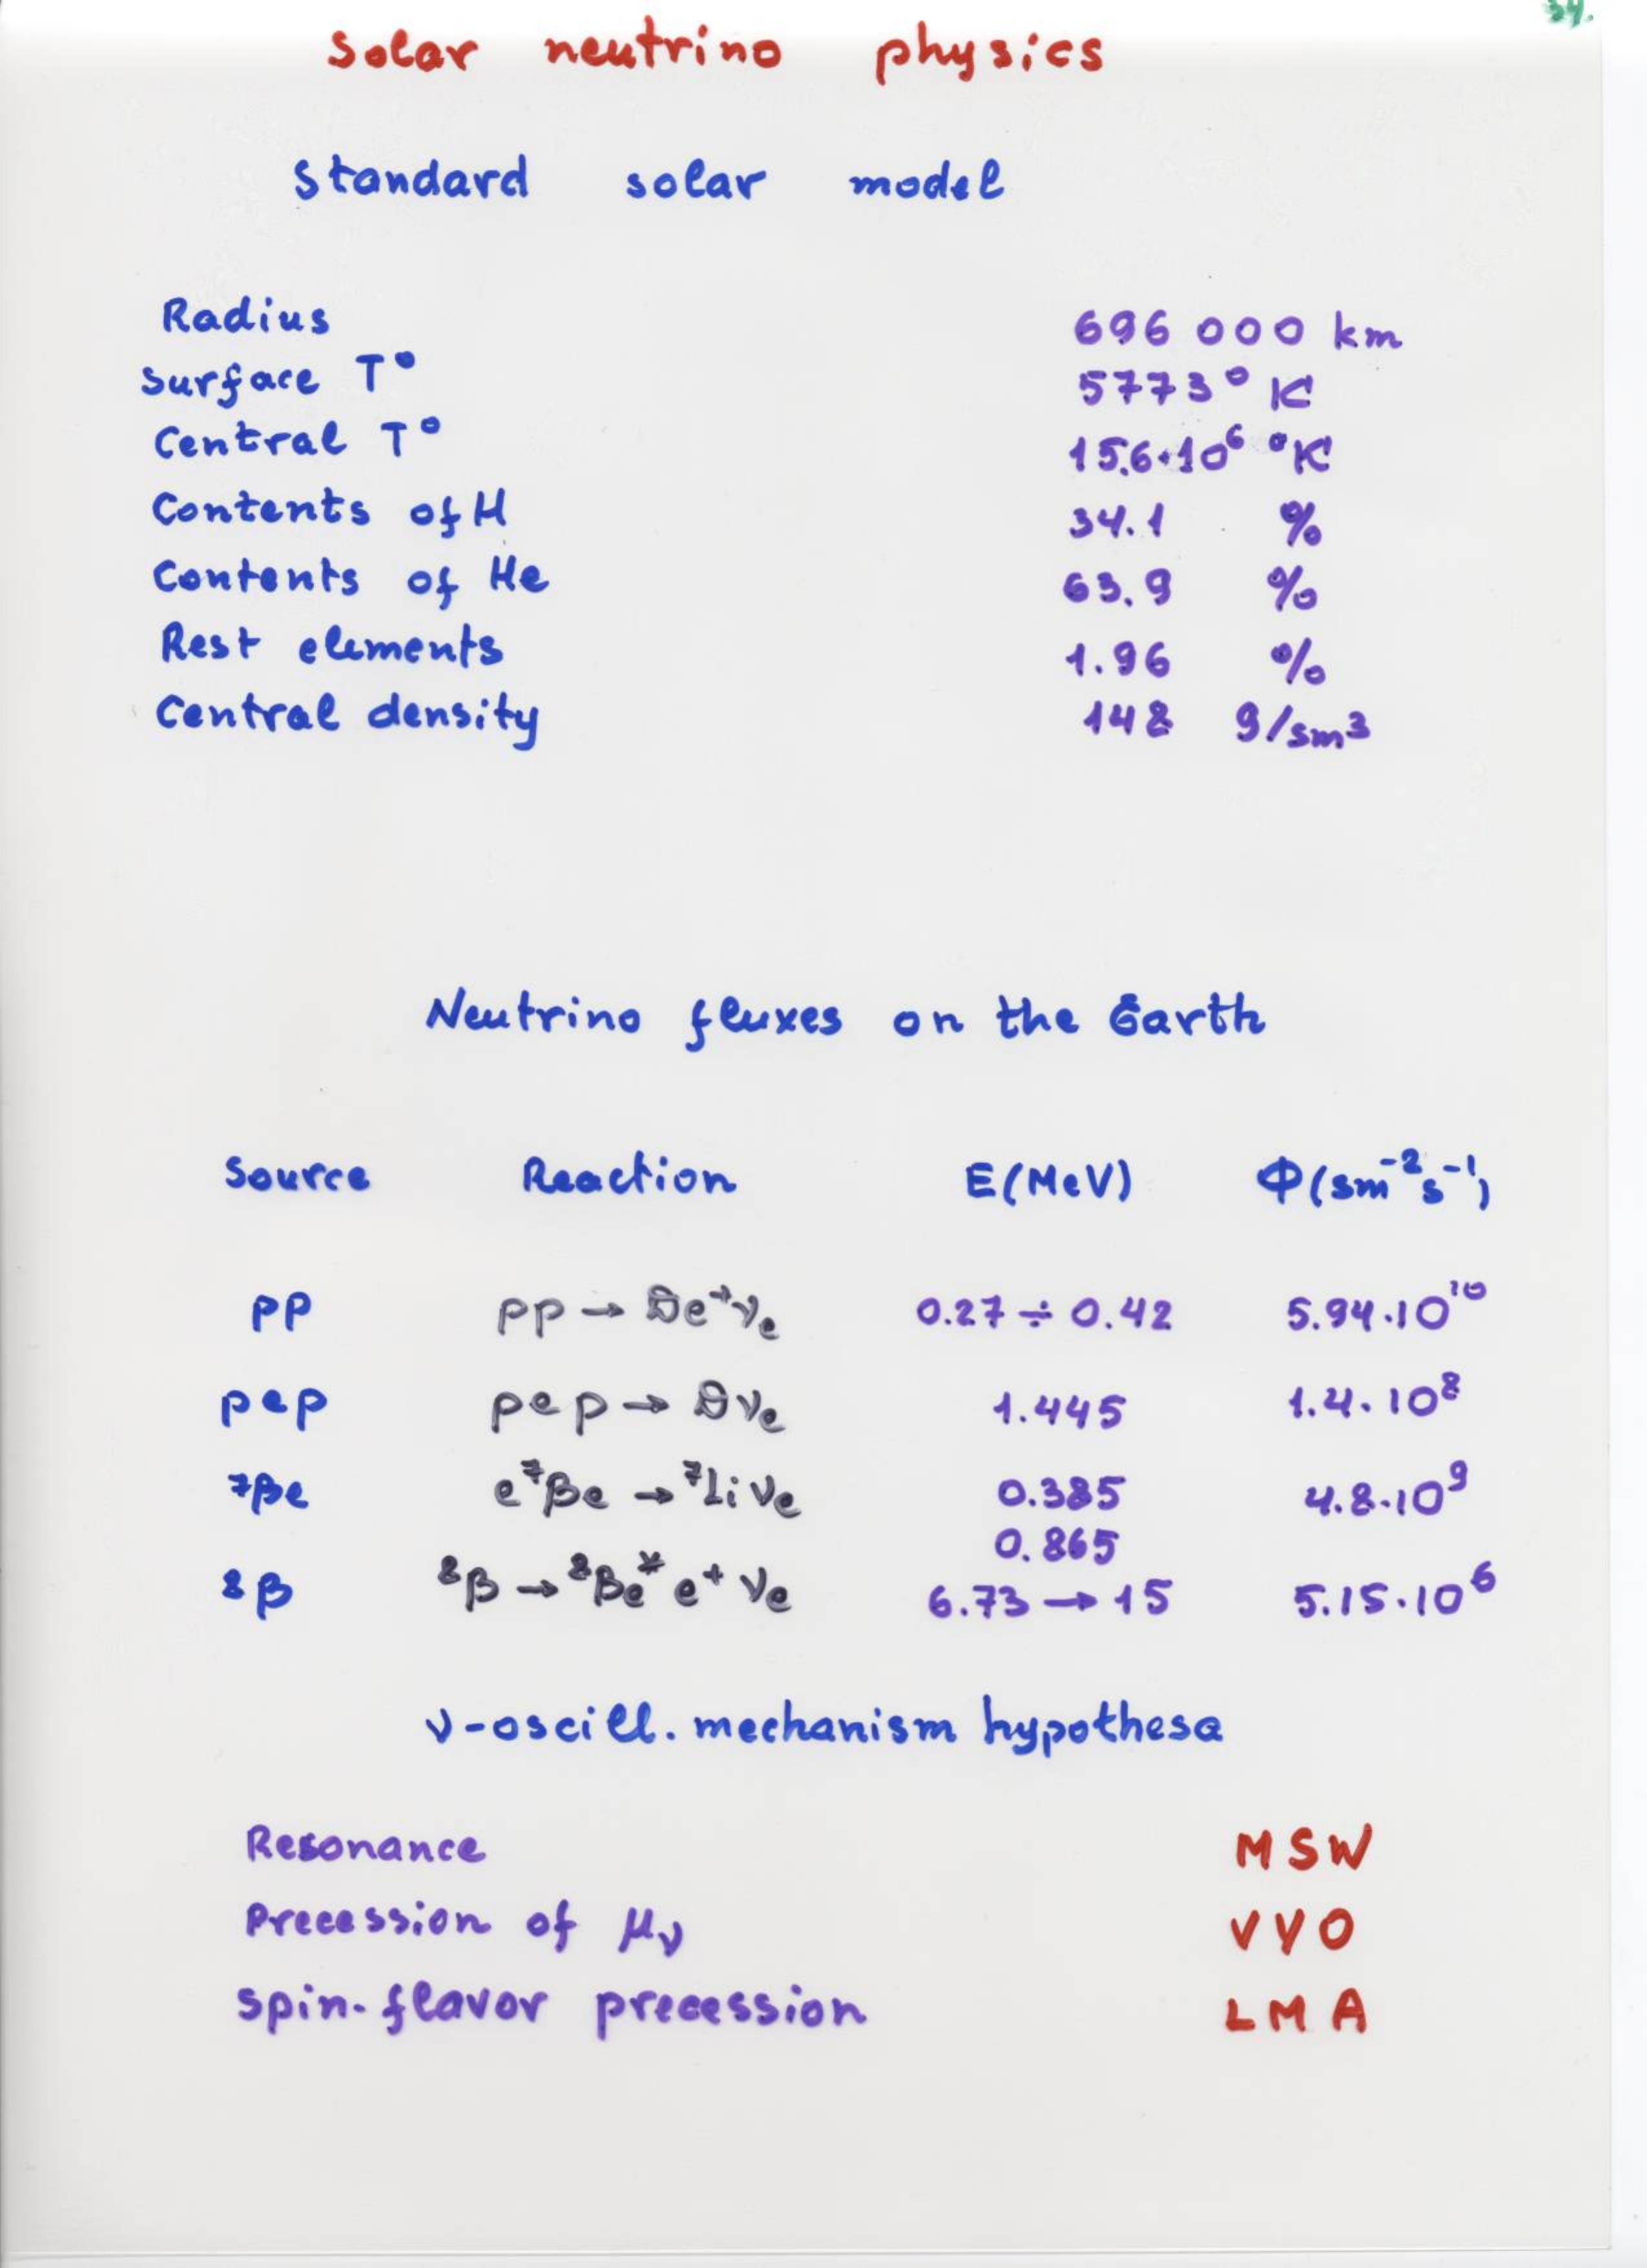 34.
Solar neutrino physics
Standard solar model
Radius 696 000 km
Surface T° 5773° K
Central T° 15.6·10⁶ °K
Contents of H 34.1 %
Contents of He 63.9 %
Rest elements 1.96 %
Central density 148 g/sm³
Neutrino fluxes on the Earth
Source Reaction E(MeV) Φ(sm⁻²s⁻¹)
pp pp → De⁺νₑ 0.27 ÷ 0.42 5.94·10¹⁰
pep pep → Dνₑ 1.445 1.4·10⁸
⁷Be e⁷Be → ⁷Li νₑ 0.385 4.8·10⁹
0.865
⁸B ⁸B → ⁸Be* e⁺ νₑ 6.73 → 15 5.15·10⁶
ν-oscill. mechanism hypothesa
Resonance MSW
Precession of μᵥ VVO
Spin-flavor precession LMA